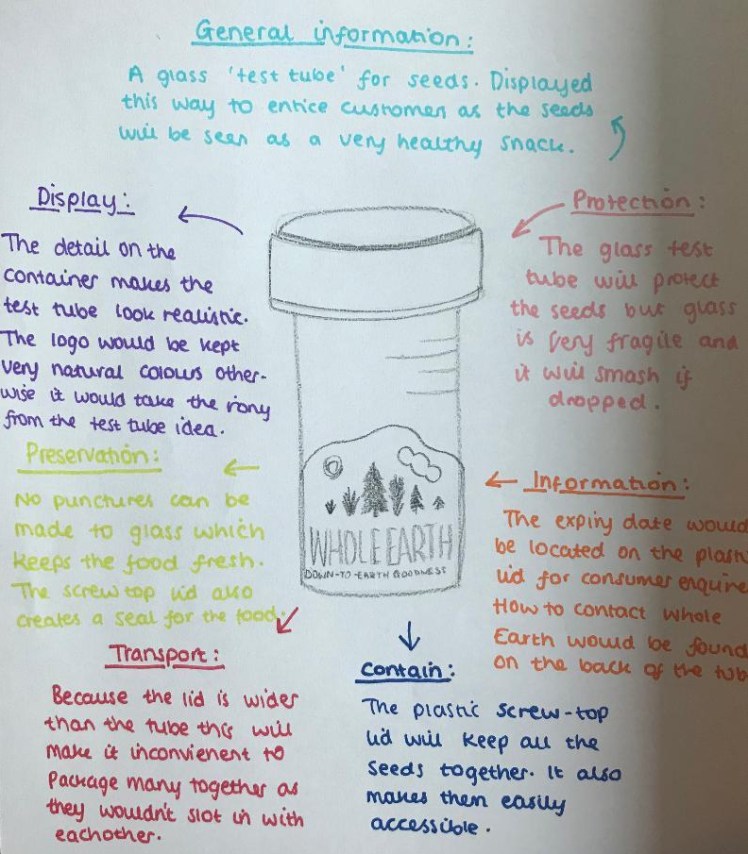 General information:
A glass 'test tube' for seeds. Displayed
this way to entice customers as the seeds
will be seen as a very healthy snack.
Display:
The detail on the
container makes the
test tube look realistic.
The logo would be kept
very natural colours other-
wise it would take the irony
from the test tube idea.
Protection:
The glass test
tube will protect
the seeds but glass
is very fragile and
it will smash if
dropped.
Preservation:
No punctures can be
made to glass which
keeps the food fresh.
The screw top lid also
creates a seal for the food.
Information:
The expiry date would
be located on the plastic
lid for consumer enquire
How to contact whole
Earth would be found
on the back of the tub
WHOLE EARTH
DOWN-TO-EARTH GOODNESS
Transport:
Because the lid is wider
than the tube this will
make it inconvienent to
package many together as
they wouldn't slot in with
eachother.
Contain:
The plastic screw-top
lid will keep all the
seeds together. It also
makes them easily
accessible.